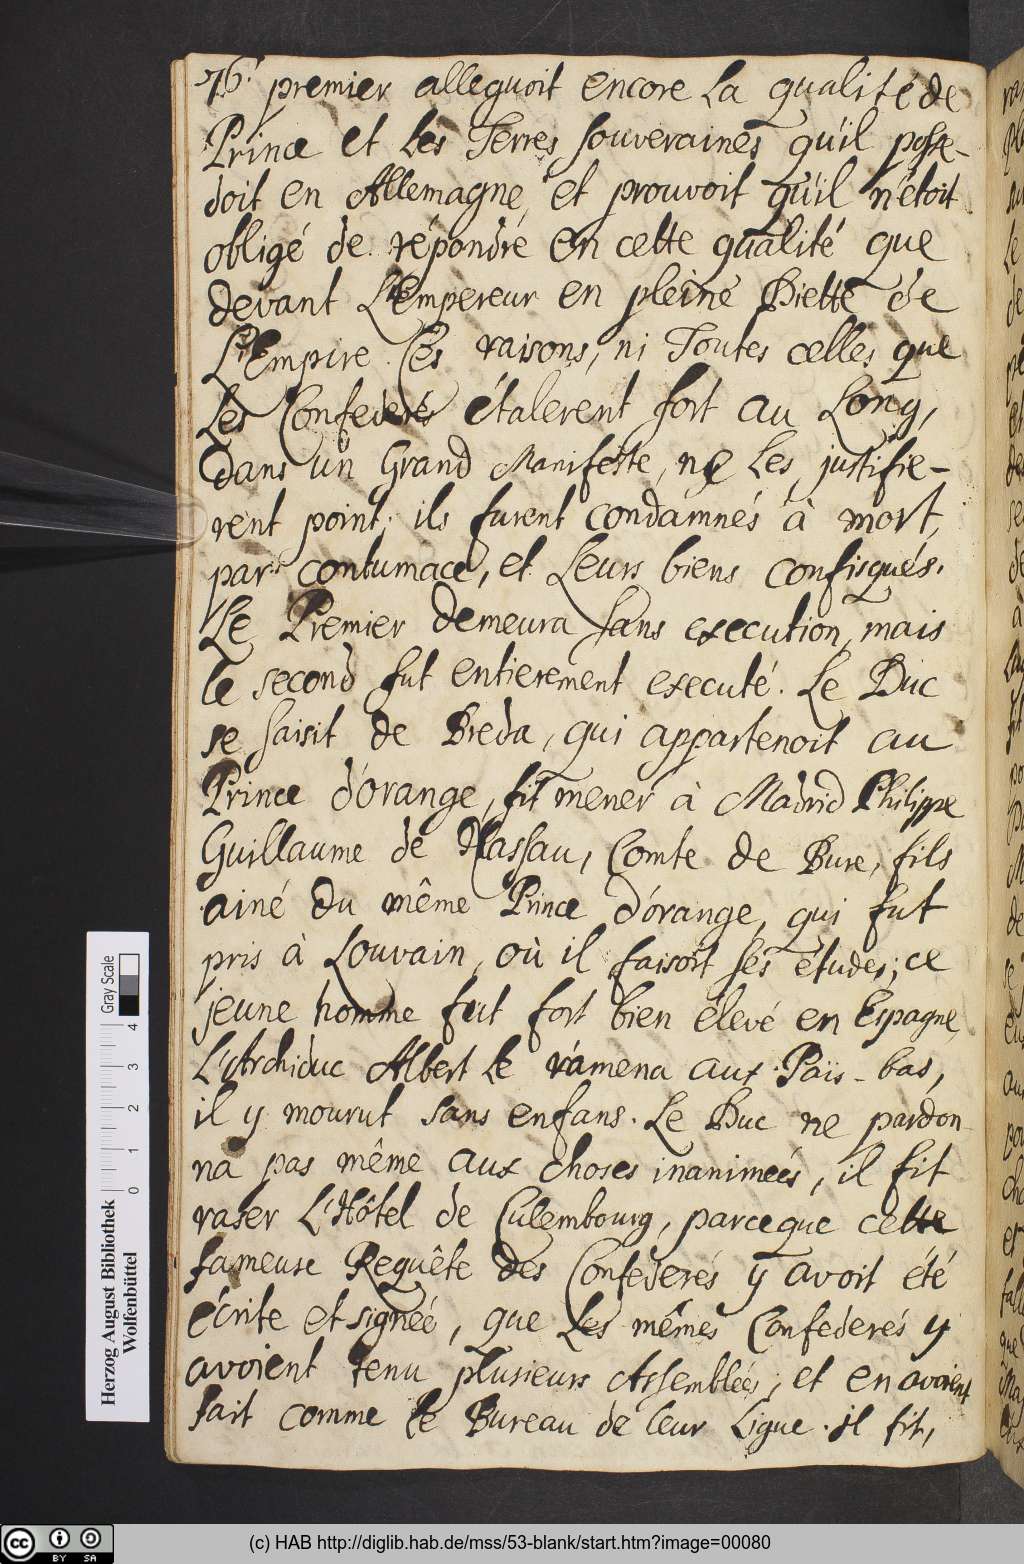 76. premier alleguoit encore La qualité de
Prince et Les Terres souveraines qu'il posse-
doit en Allemagne, et prouvoit qu'il n'étoit
obligé de répondre en cette qualité que
devant L'Empereur en pleine Diette de
L'Empire. Ces raisons, ni Toutes celles que
Les Confederés étalerent fort au Long,
dans un Grand Manifeste, ne Les justifie-
rent point; ils furent condamnés à mort,
par contumace, et Leurs biens confisqués.
Le Premier demeura sans execution, mais
le second fut entierement executé. Le Duc
se saisit de Breda, qui appartenoit au
Prince d'orange, fit mener à Madrid Philippe
Guillaume de Nassau, Comte de Bure, fils
ainé du même Prince d'orange, qui fut
pris à Louvain, où il faisoit ses études; ce
jeune homme fut fort bien élevé en Espagne,
L'Archiduc Albert Le ramena aux Païs-bas,
il y mourut sans enfans. Le Duc ne pardon-
na pas même aux choses inanimeés, il fit
raser L'Hôtel de Culembourg, parceque cette
fameuse Requête des Confederés y avoit été
écrite et signeé, que Les mêmes Confederés y
avoient tenu plusieurs Assembleés, et en avoient
fait comme le Bureau de leur Ligue. il fit,
Herzog August Bibliothek
Wolfenbüttel
0 1 2 3 4
Gray Scale
cc BY SA
(c) HAB http://diglib.hab.de/mss/53-blank/start.htm?image=00080